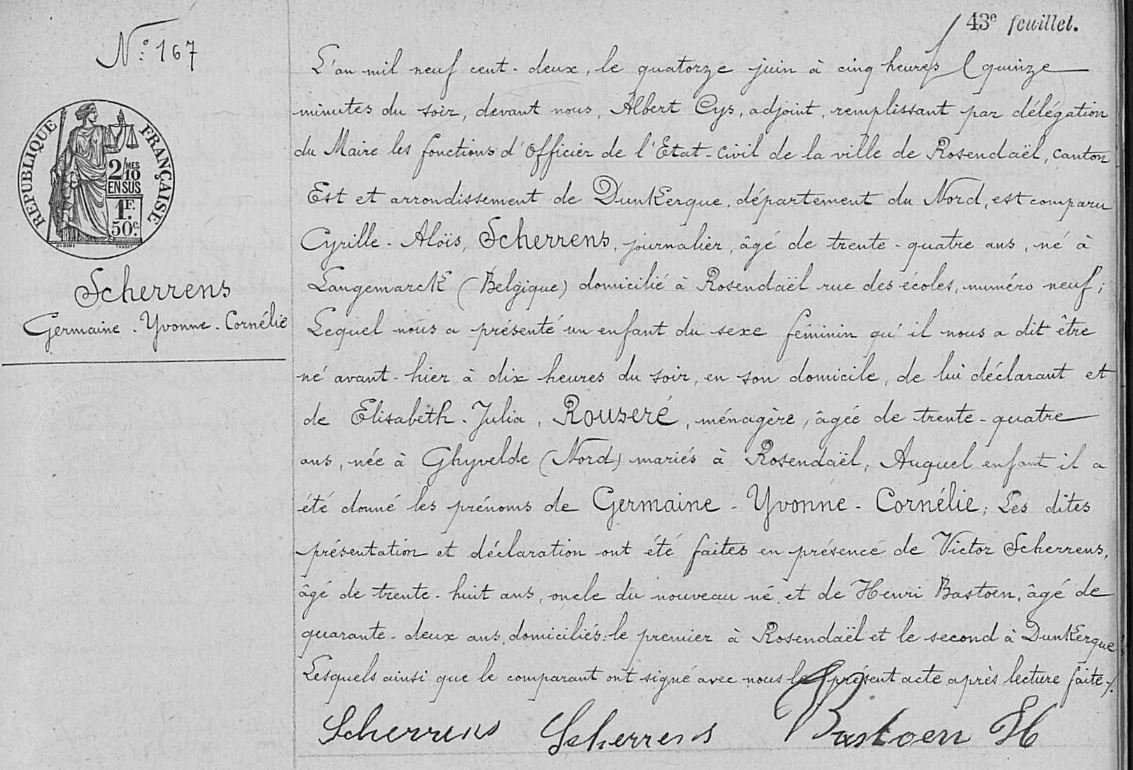 43e feuillet.
N° 167
RÉPUBLIQUE FRANÇAISE
2/10 MES
EN SUS
1F.
50c
Scherrens
Germaine - Yvonne - Cornélie
L'an mil neuf cent-deux, le quatorze juin à cinq heures quinze
minutes du soir, devant nous, Albert Cys, adjoint, remplissant par délégation
du Maire les fonctions d'Officier de l'Etat-Civil de la ville de Rosendaël, canton
Est et arrondissement de Dunkerque, département du Nord, est comparu
Cyrille-Aloïs, Scherrens, journalier, âgé de trente-quatre ans, né à
Langemarck (Belgique) domicilié à Rosendaël rue des écoles, numéro neuf;
Lequel nous a présenté un enfant du sexe féminin qu'il nous a dit être
né avant-hier à dix heures du soir, en son domicile, de lui déclarant et
de Elisabeth-Julia, Rouseré, ménagère, âgée de trente-quatre
ans, née à Ghyvelde (Nord) mariés à Rosendaël, Auquel enfant il a
été donné les prénoms de Germaine - Yvonne - Cornélie; Les dites
présentation et déclaration ont été faites en présence de Victor Scherrens,
âgé de trente-huit ans, oncle du nouveau né, et de Henri Bastoen, âgé de
quarante-deux ans, domiciliés: le premier à Rosendaël et le second à Dunkerque
Lesquels ainsi que le comparant ont signé avec nous le présent acte après lecture faite./.
Scherrens Scherrens Bastoen H